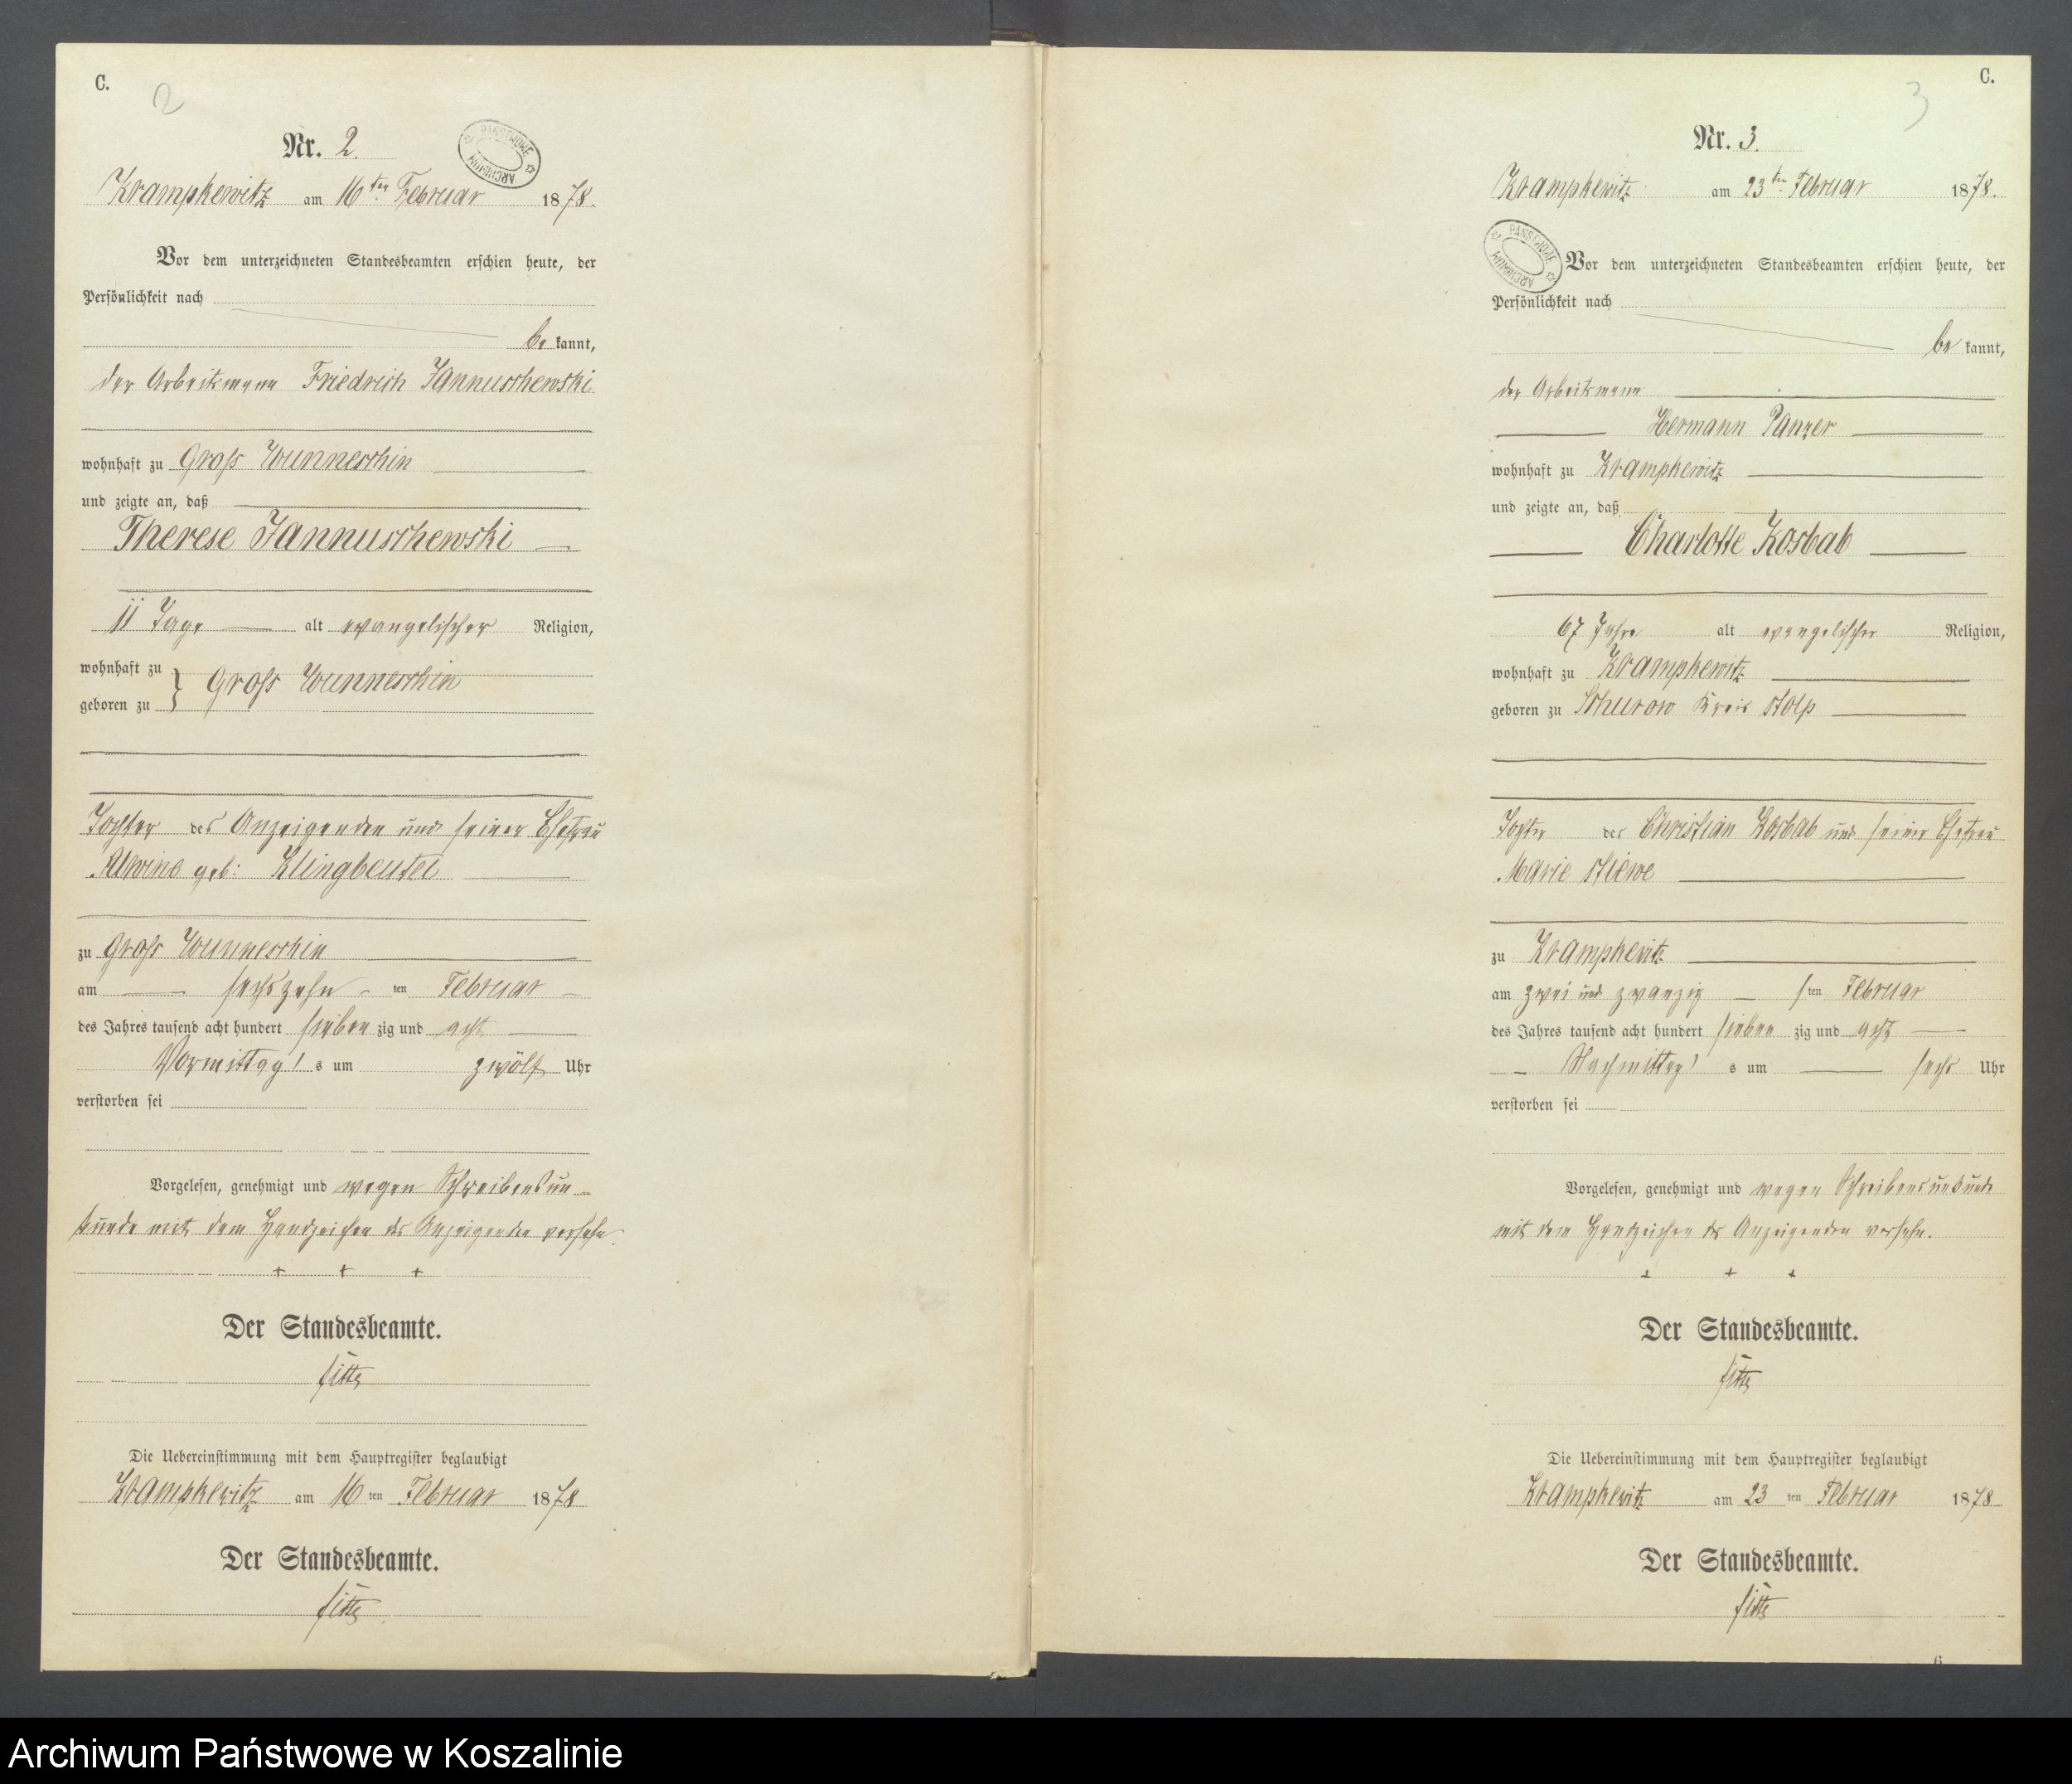 C.
2
Nr. 2.
PAŃSTWOWE ARCHIWUM
Krampkewitz am 16ten Februar 1878.
Vor dem unterzeichneten Standesbeamten erschien heute, der
Persönlichkeit nach
be kannt,
der Arbeitsmann Friedrich Jannuschewski
wohnhaft zu Gross Wunneschin
und zeigte an, daß
Therese Jannuschewski
11 Tage alt evangelischer Religion,
wohnhaft zu
geboren zu } Gross Wunneschin
Tochter des Anzeigenden und seiner Ehefrau
Alwine geb: Klingbeutel
zu Gross Wunneschin
am sechszehn ten Februar
des Jahres tausend acht hundert sieben zig und acht
Vormittag s um zwölf Uhr
verstorben sei
Vorgelesen, genehmigt und wegen Schreibensun-
kunde mit dem Handzeichen des Anzeigenden versehn.
+ + +
Der Standesbeamte.
Die Uebereinstimmung mit dem Hauptregister beglaubigt
Krampkewitz am 16 ten Februar 1878
Der Standesbeamte.
C.
3
Nr. 3.
Krampkewitz am 23ten Februar 1878.
PAŃSTWOWE ARCHIWUM
Vor dem unterzeichneten Standesbeamten erschien heute, der
Persönlichkeit nach
be kannt,
der Arbeitsmann
Hermann Panzer
wohnhaft zu Krampkewitz
und zeigte an, daß
Charlotte Kosbab
67 Jahre alt evangelischer Religion,
wohnhaft zu Krampkewitz
geboren zu Schurow Kreis Stolp
Tochter des Christian Kosbab und seiner Ehefrau
Marie Stiewe
zu Krampkewitz
am zwei und zwanzig sten Februar
des Jahres tausend acht hundert sieben zig und acht
Nachmittag s um sechs Uhr
verstorben sei
Vorgelesen, genehmigt und wegen Schreibensunkunde
mit dem Handzeichen des Anzeigenden versehn.
+ + +
Der Standesbeamte.
Die Uebereinstimmung mit dem Hauptregister beglaubigt
Krampkewitz am 23 ten Februar 1878
Der Standesbeamte.
Archiwum Państwowe w Koszalinie